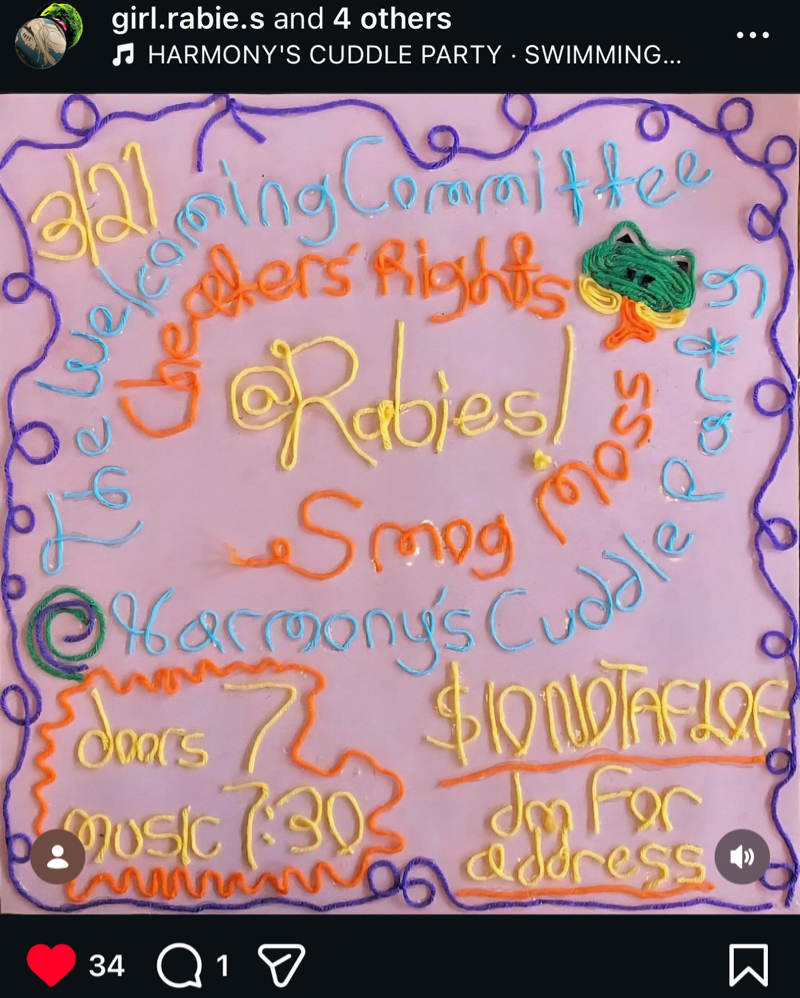 girl.rabie.s and 4 others
HARMONY'S CUDDLE PARTY · SWIMMING...
3/21
The Welcoming Committee
Cheaters' Rights
@Rabies!
Smog Moss
Harmony's Cuddle Party
doors 7
music 7:30
$10 NOTAFLOF
dm For
address
34
1